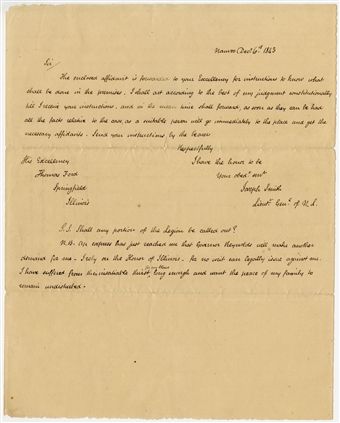 Nauvoo Decr 6th 1843
Sir
The enclosed affidavit is forwarded to your Excellency for instructions to know what
shall be done in the premises. I shall act according to the best of my judgment constitutionally
till I receive your instructions, and in the mean time shall forward, as soon as they can be had
all the facts relative to the case, as a suitable person will go immediately to the place and get the
necessary affidavits. Send your instructions by the bearer
Respectfully
His Excellency I have the honor to be
Thomas Ford Your obedt servt
Springfield Joseph Smith
Illinois Lieutt Genl of N. L.
P.S. Shall any portion of the Legion be called out?
N.B. An express has just reached me that Governor Reynolds will make another
demand for me. I rely on the Honor of Illinois, for no writ can legally issue against me.
I have suffered from their insatiable thirst long enough and want the peace of my family to
remain undisturbed.